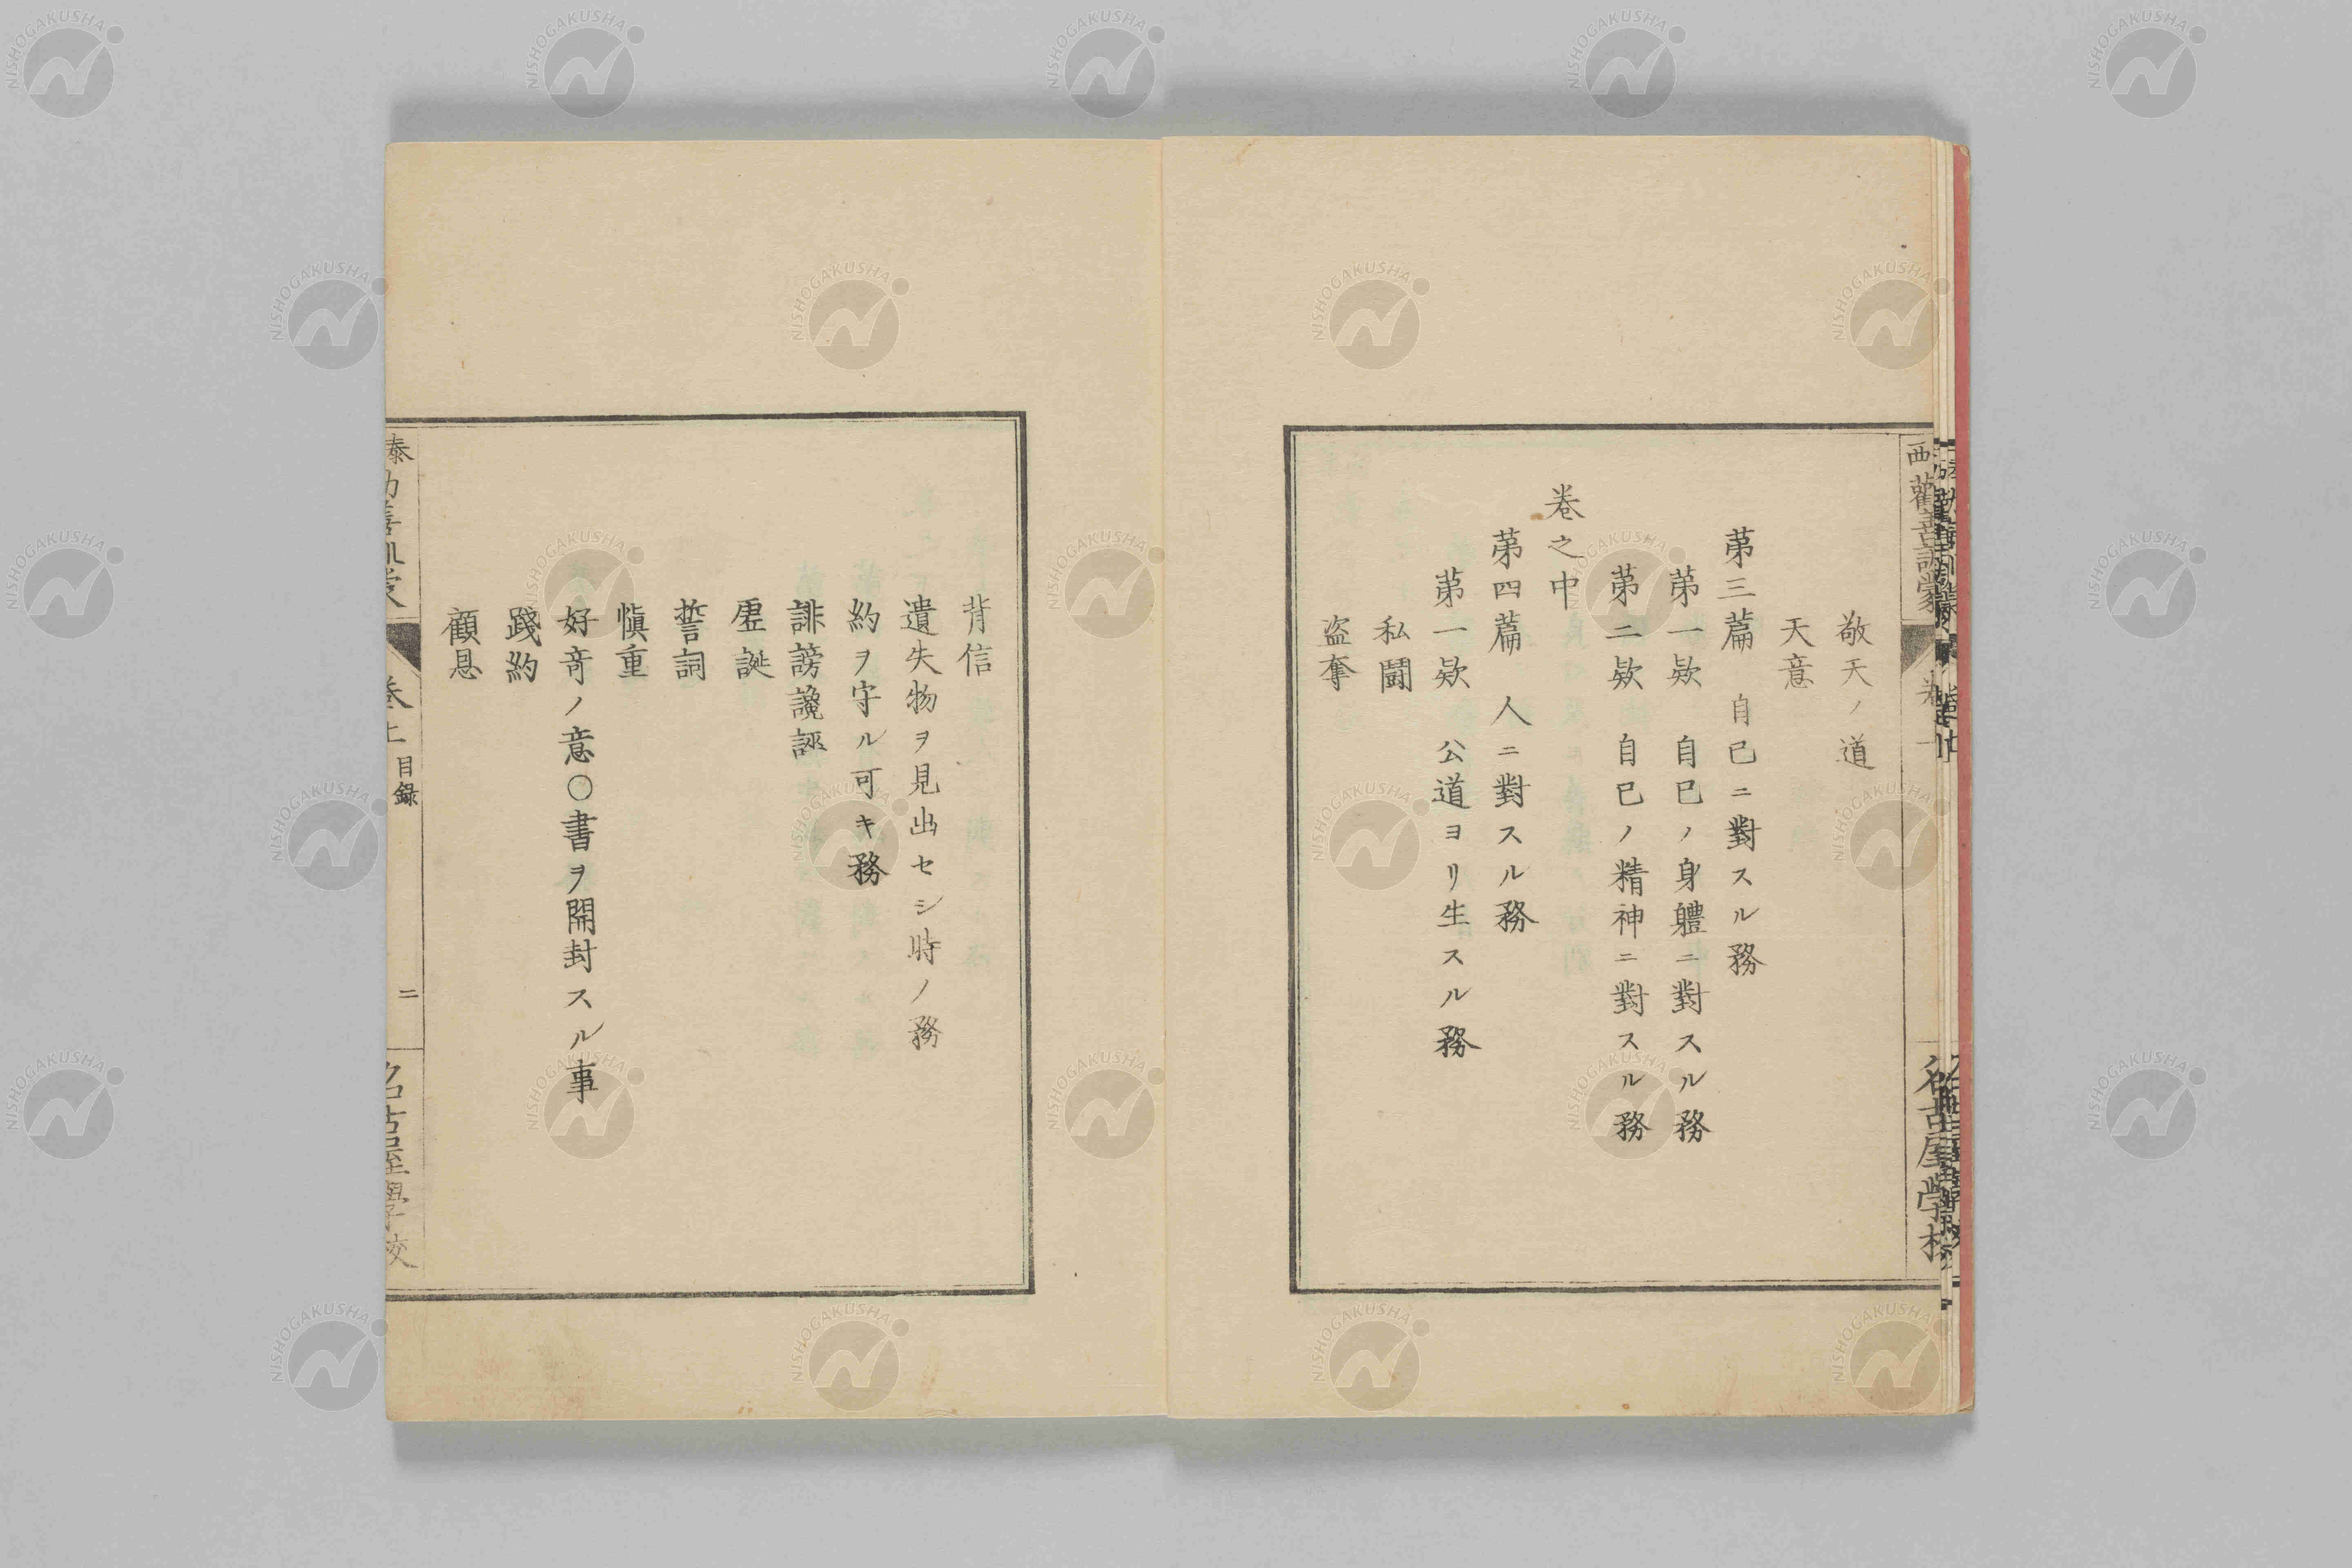 敬天ノ道
天意
第三篇 自己ニ對スル務
第一欵 自己ノ身軆ニ對スル務
第二欵 自己ノ精神ニ對スル務
卷之中
第四篇 人ニ對スル務
第一欵 公道ヨリ生スル務
私鬪
盗奪
背信
遺失物ヲ見出セシ時ノ務
約ヲ守ル可キ務
誹謗讒誣
虚誕
誓詞
愼重
好奇ノ意〇書ヲ開封スル事
踐約
顧息
目録
二
名古屋學校
NISHOGAKUSHA